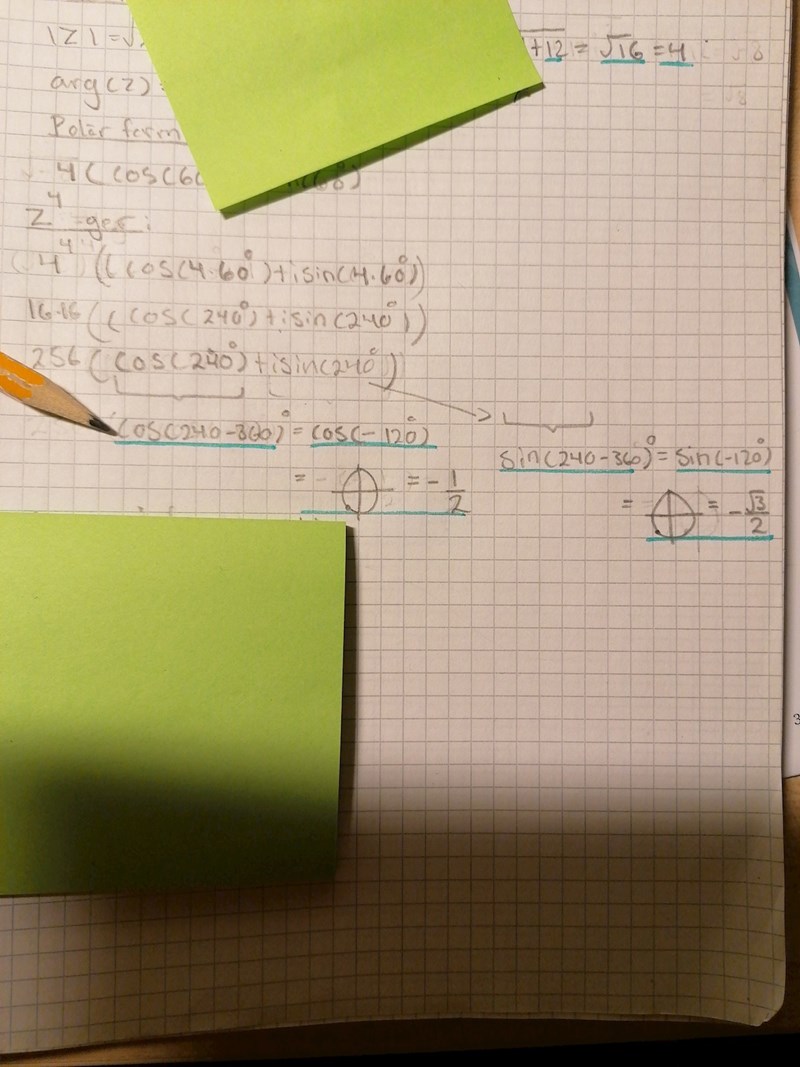 |Z| = √
+12 = √16 = 4
arg(z)
Polär form
4(cos(60
z⁴ ger:
4⁴((cos(4·60°)+isin(4·60°))
16·16((cos(240°)+isin(240°))
256(cos(240°)+isin(240°))
cos(240-360)° = cos(-120°)
sin(240-360)° = sin(-120°)
= = -1/2
= = -√3/2
3